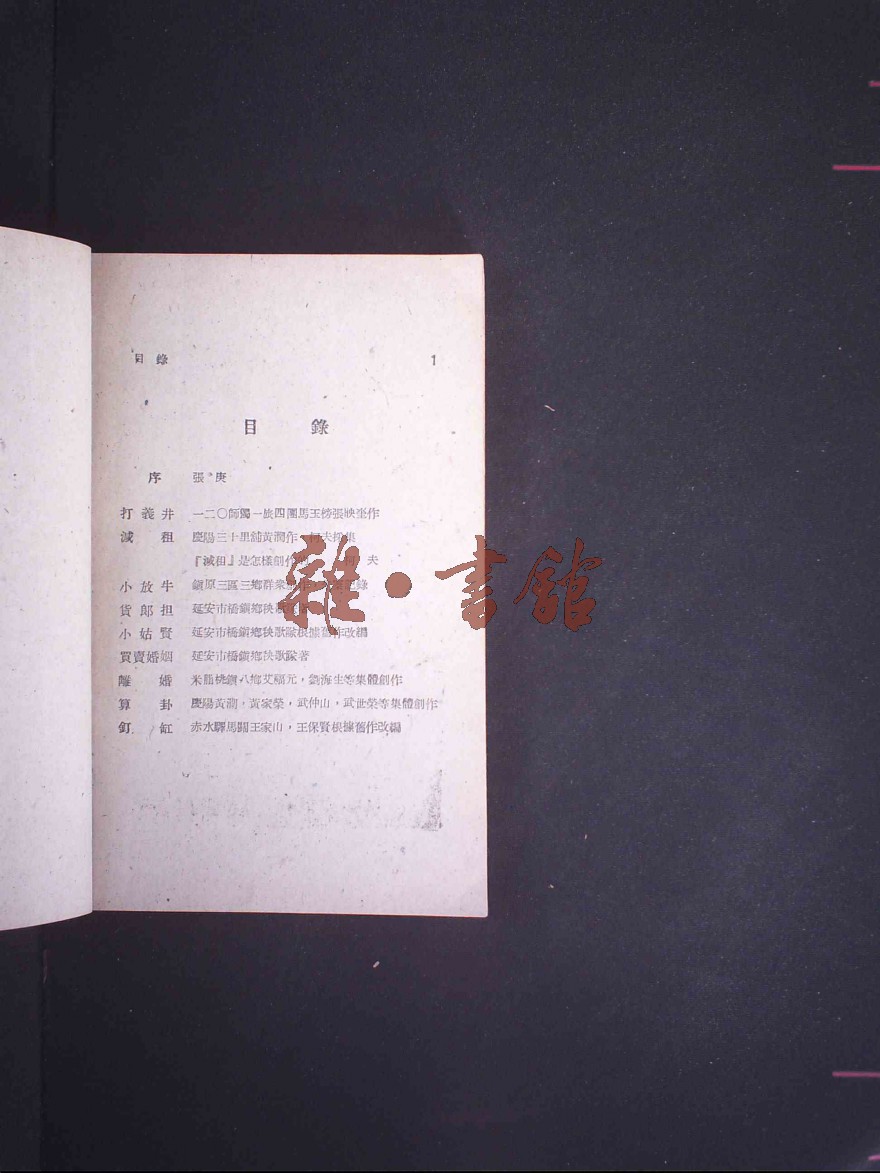 目錄 1
目 錄
序 張庚
打義井 一二〇師獨一旅四團馬王榜張映奎作
減租 慶陽三十里舖黃潤作 柯夫採集
『減租』是怎樣創作 柯夫
小放牛 鎮原三區三鄉群衆 記錄
貨郎担 延安市橋鎮鄉秧歌
小姑賢 延安市橋鎮鄉秧歌隊根據舊作改編
買賣婚姻 延安市橋鎮鄉秧歌隊著
離婚 米脂桃鎮八鄉艾福元，劉海生等集體創作
算卦 慶陽黃潤，黃家榮，武仲山，武世榮等集體創作
釘缸 赤水驛馬關王家山，王保賢根據舊作改編
雜·書館